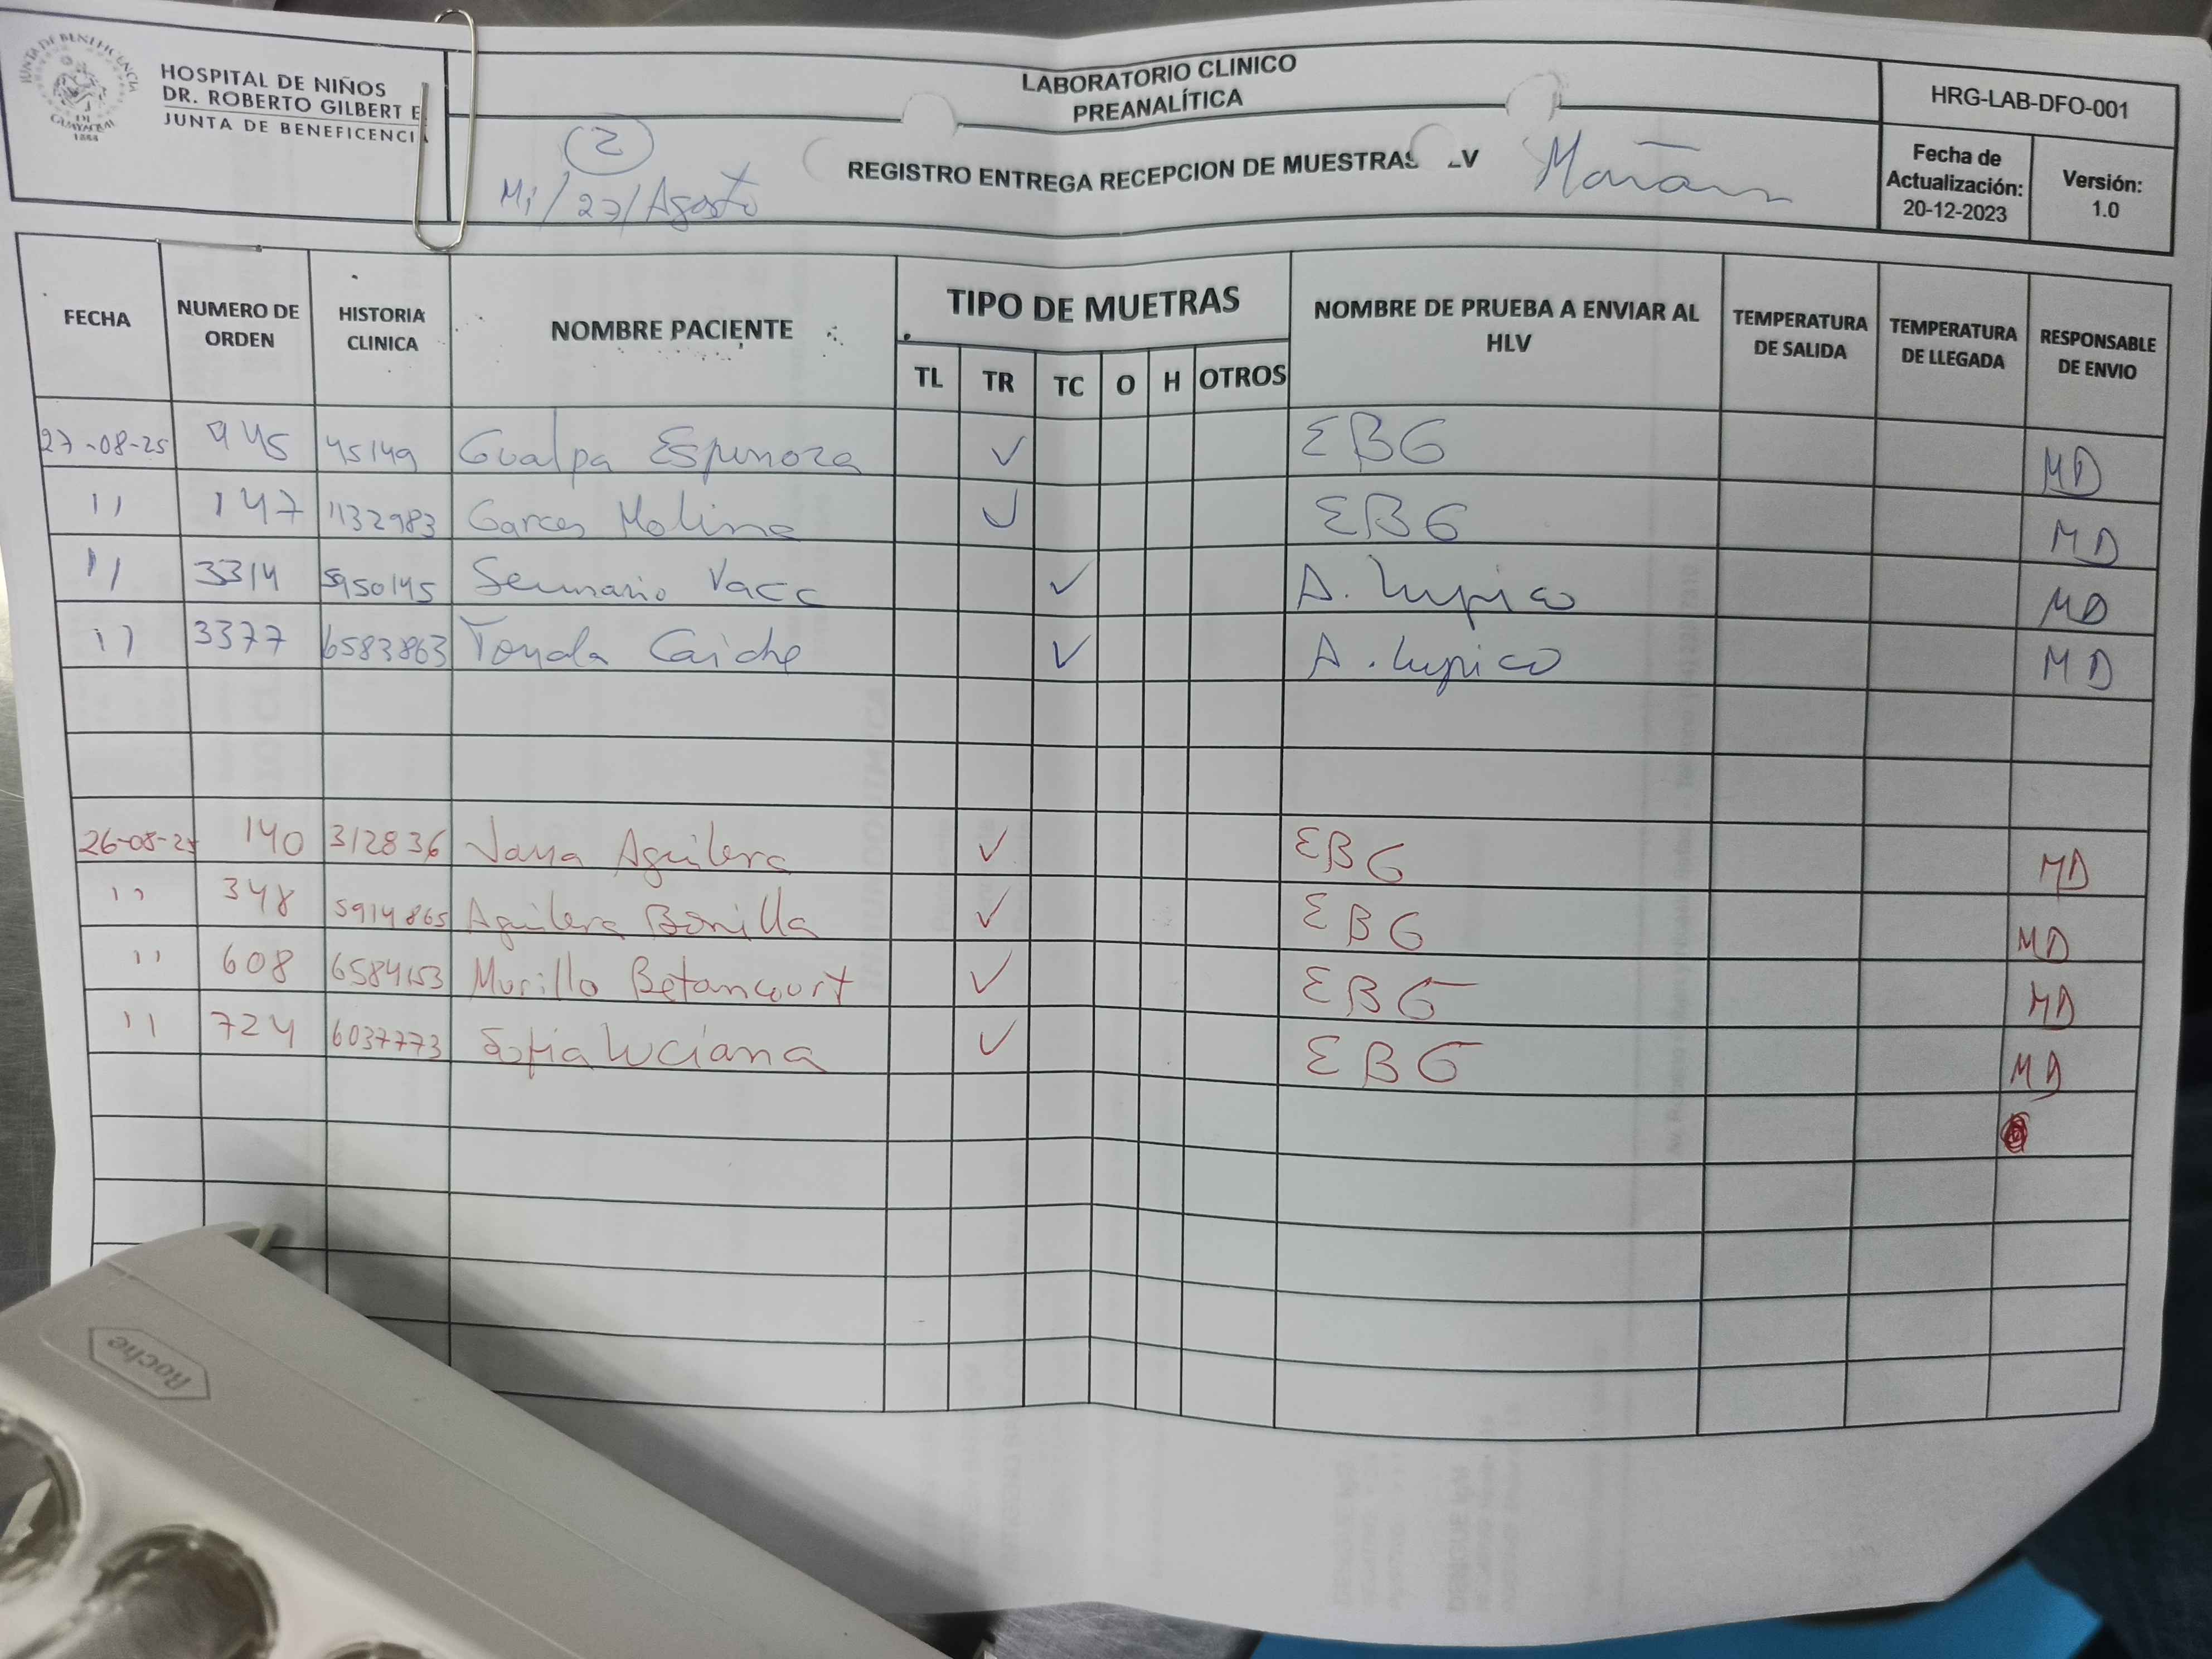 JUNTA DE BENEFICENCIA
DE GUAYAQUIL
1888
HOSPITAL DE NIÑOS
DR. ROBERTO GILBERT E
JUNTA DE BENEFICENCI
LABORATORIO CLINICO
PREANALÍTICA
HRG-LAB-DFO-001
2
Mi/27/Agosto
REGISTRO ENTREGA RECEPCION DE MUESTRAS LV
Mañana
Fecha de
Actualización:
20-12-2023
Versión:
1.0
FECHA
NUMERO DE
ORDEN
HISTORIA
CLINICA
NOMBRE PACIENTE
TIPO DE MUETRAS
TL TR TC O H OTROS
NOMBRE DE PRUEBA A ENVIAR AL
HLV
TEMPERATURA
DE SALIDA
TEMPERATURA
DE LLEGADA
RESPONSABLE
DE ENVIO
27-08-25 945 45149 Gualpa Espinoza ✓ EBG MD
11 147 1132983 Garces Molina ✓ EBG MD
11 3314 5950145 Seminario Vaca ✓ A. Lupico MD
11 3377 6583863 Tomala Caiche ✓ A. Lupico MD
26-08-25 140 312836 Aguilera ✓ EBG MD
11 348 5914865 Aguilera Bonilla ✓ EBG MD
11 608 6584153 Murillo Betancourt ✓ EBG MD
11 724 6037773 Sofia Luciana ✓ EBG MD
Roche